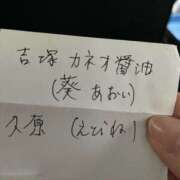 吉塚 カネオ醤油
(葵 あおい)
久原 (えびね)